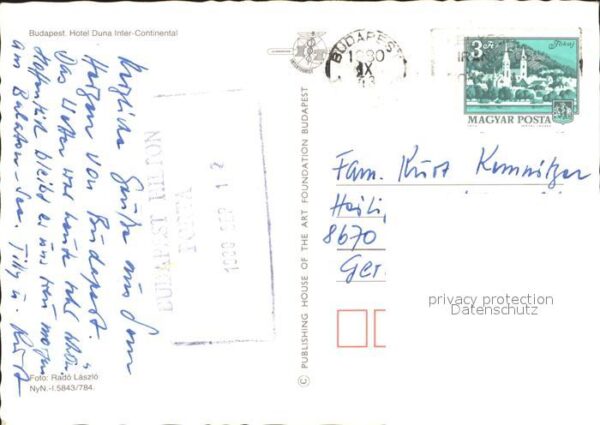 Budapest. Hotel Duna Inter-Continental
Herzliche Grüße aus dem
Herzen von Budapest.
Das Wetter war heute sehr schön.
Hoffentlich bleibt es uns treu morgen
am Balaton-See. Tilly u. Kurt
Foto: Radó László
NyN.-I.5843/784.
BUDAPEST HILTON
POSTA
SEP 12
© PUBLISHING HOUSE OF THE ART FOUNDATION BUDAPEST
BUDAPEST
1980
IX
3 Ft
Tokaj
MAGYAR POSTA
Fam. Kurt Kemnitzer
Heili
8670
Ger.
privacy protection
Datenschutz